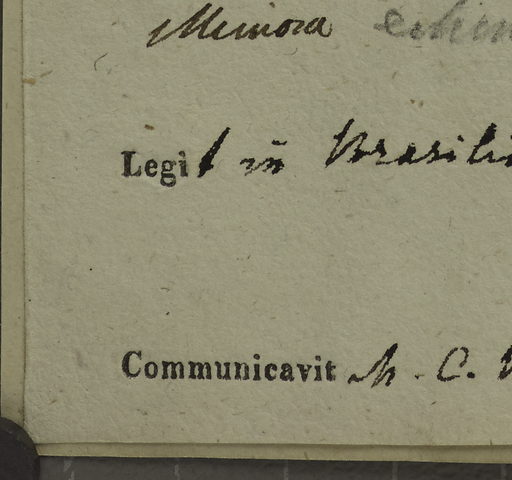 Mimosa
Legit in Brasili
Communicavit M. C.